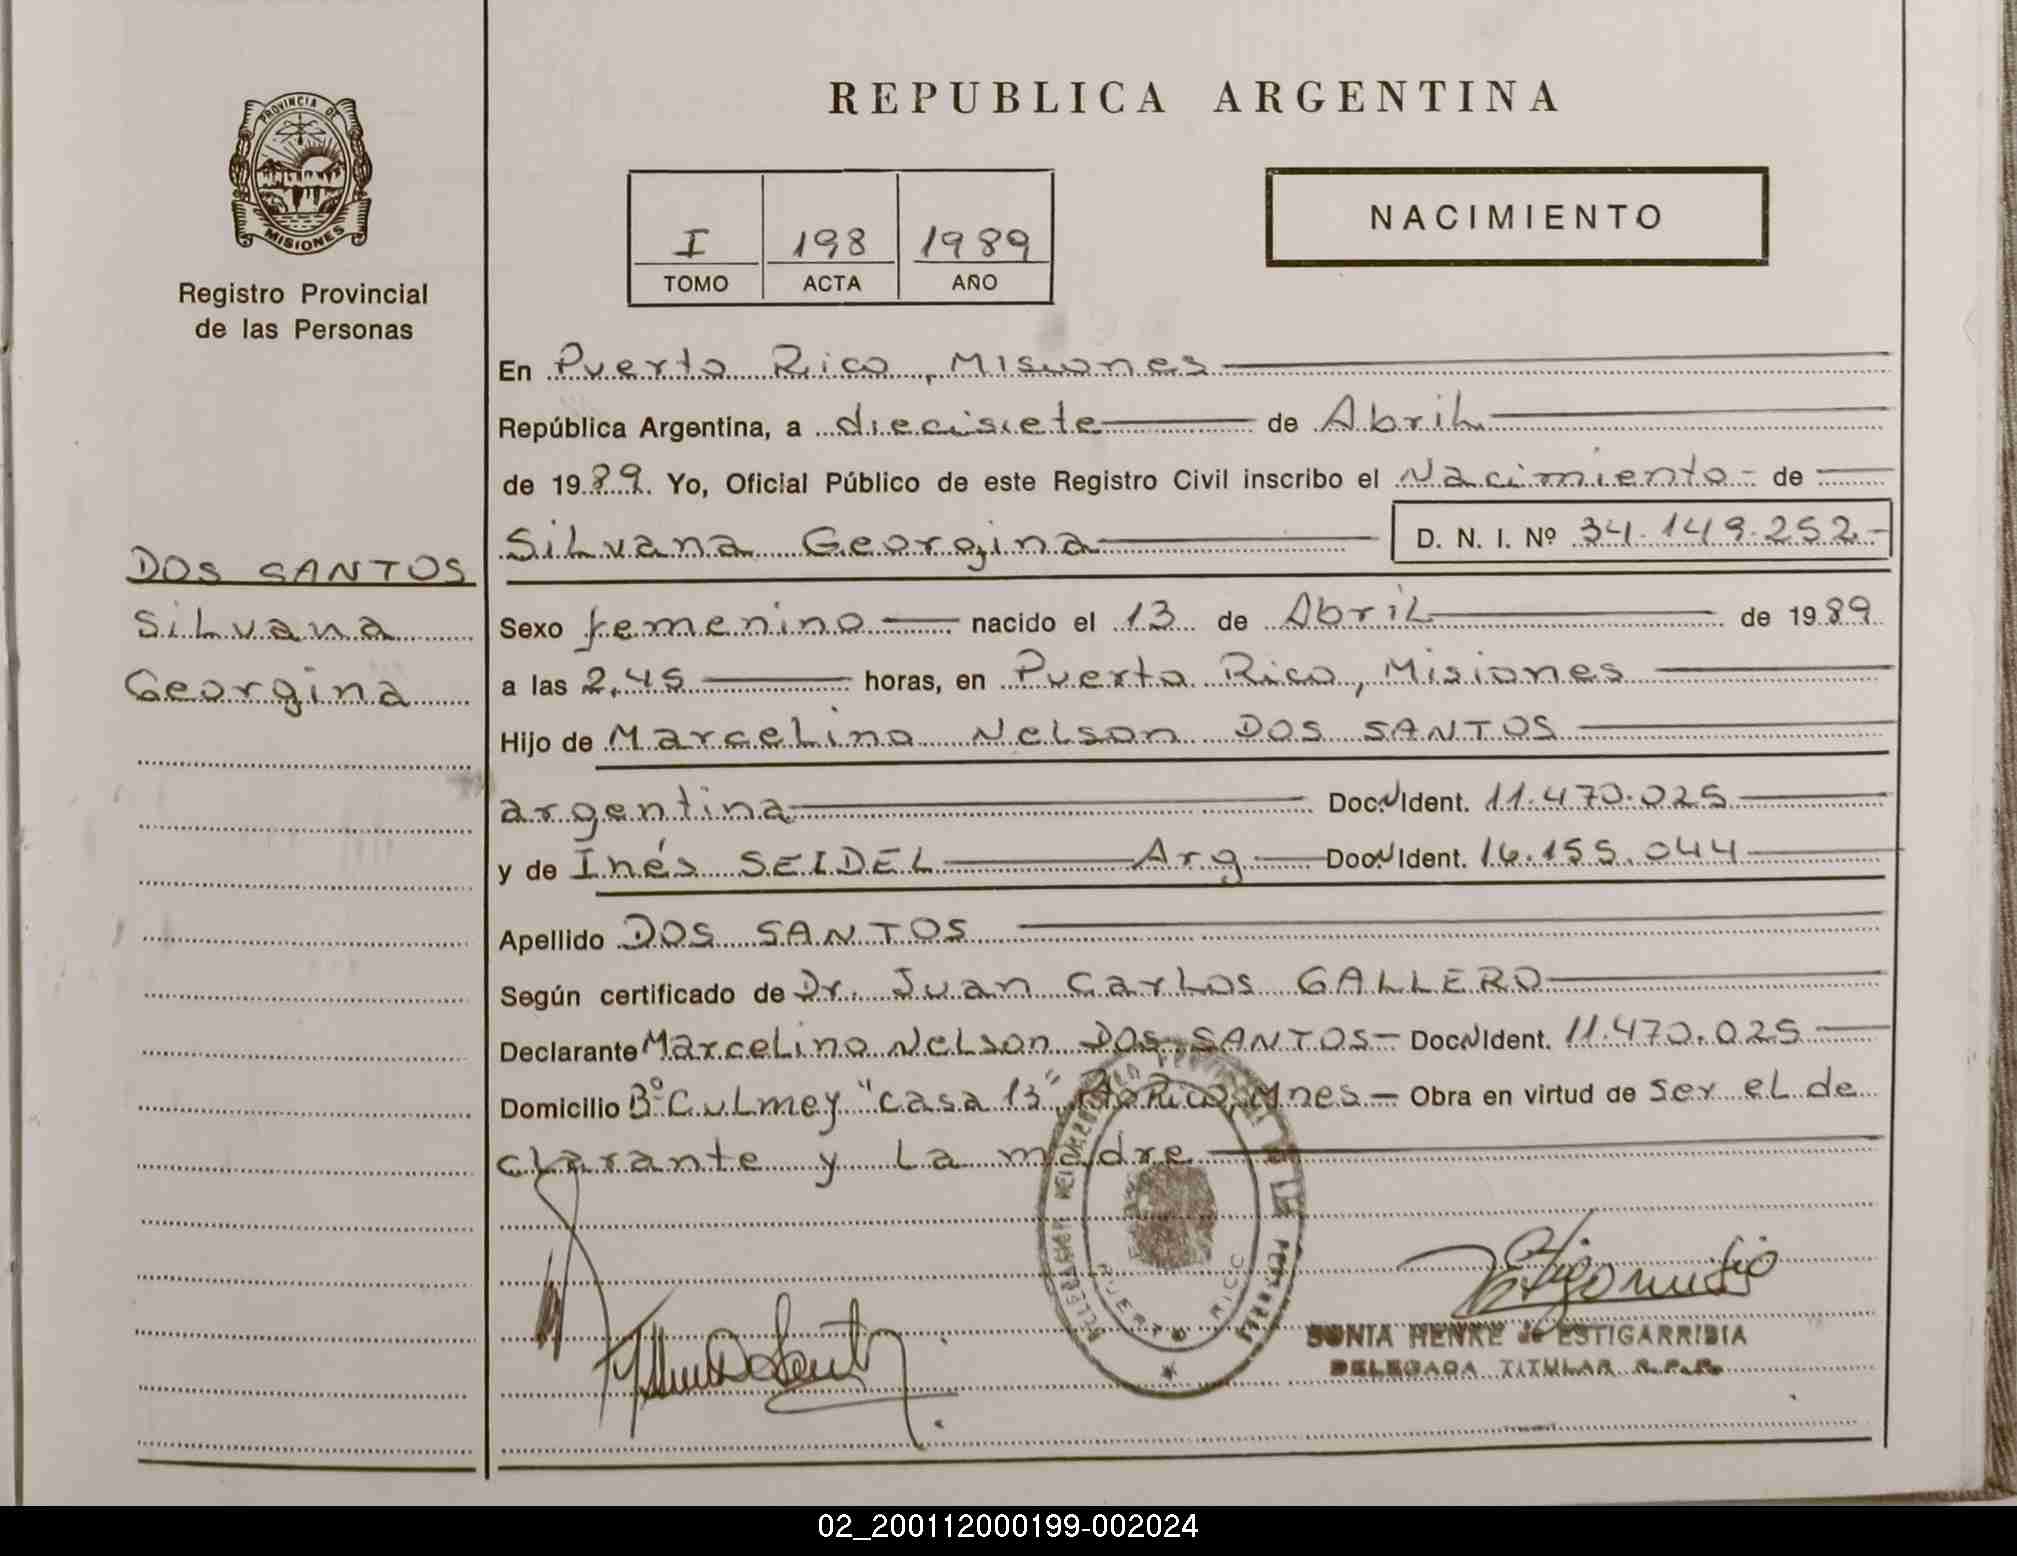 PROVINCIA DE
MISIONES
Registro Provincial
de las Personas
DOS SANTOS
Silvana
Georgina
REPUBLICA ARGENTINA
I 198 1989
TOMO ACTA AÑO
NACIMIENTO
En Puerto Rico, Misiones
República Argentina, a diecisiete de Abril
de 1989. Yo, Oficial Público de este Registro Civil inscribo el Nacimiento de
Silvana Georgina D. N. I. Nº 34.149.252.-
Sexo femenino nacido el 13 de Abril de 1989
a las 2,45 horas, en Puerto Rico, Misiones
Hijo de Marcelino Nelson DOS SANTOS
argentina Doc. N Ident. 11.470.025
y de Inés SEIDEL Arg Doc. N Ident. 16.155.044
Apellido DOS SANTOS
Según certificado de Dr. Juan Carlos GALLERO
Declarante Marcelino Nelson DOS SANTOS - Doc. N Ident. 11.470.025
Domicilio Bº Culmey "casa 13" Pto Rico, Mnes - Obra en virtud de ser el de
clarante y la madre
PUERTO RICO
SONIA HENKE de ESTIGARRIBIA
DELEGADA TITULAR R.P.P.
02_200112000199-002024